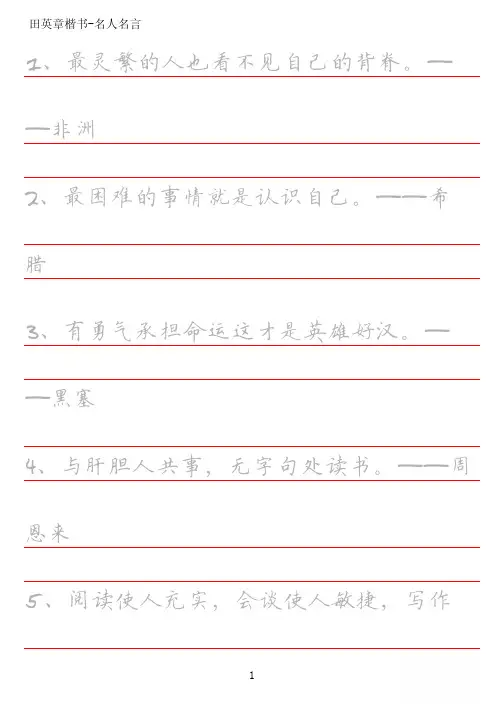 田英章楷书-名人名言
1、最灵繁的人也看不见自己的背脊。—
—非洲
2、最困难的事情就是认识自己。——希
腊
3、有勇气承担命运这才是英雄好汉。—
—黑塞
4、与肝胆人共事，无字句处读书。——周
恩来
5、阅读使人充实，会谈使人敏捷，写作
1